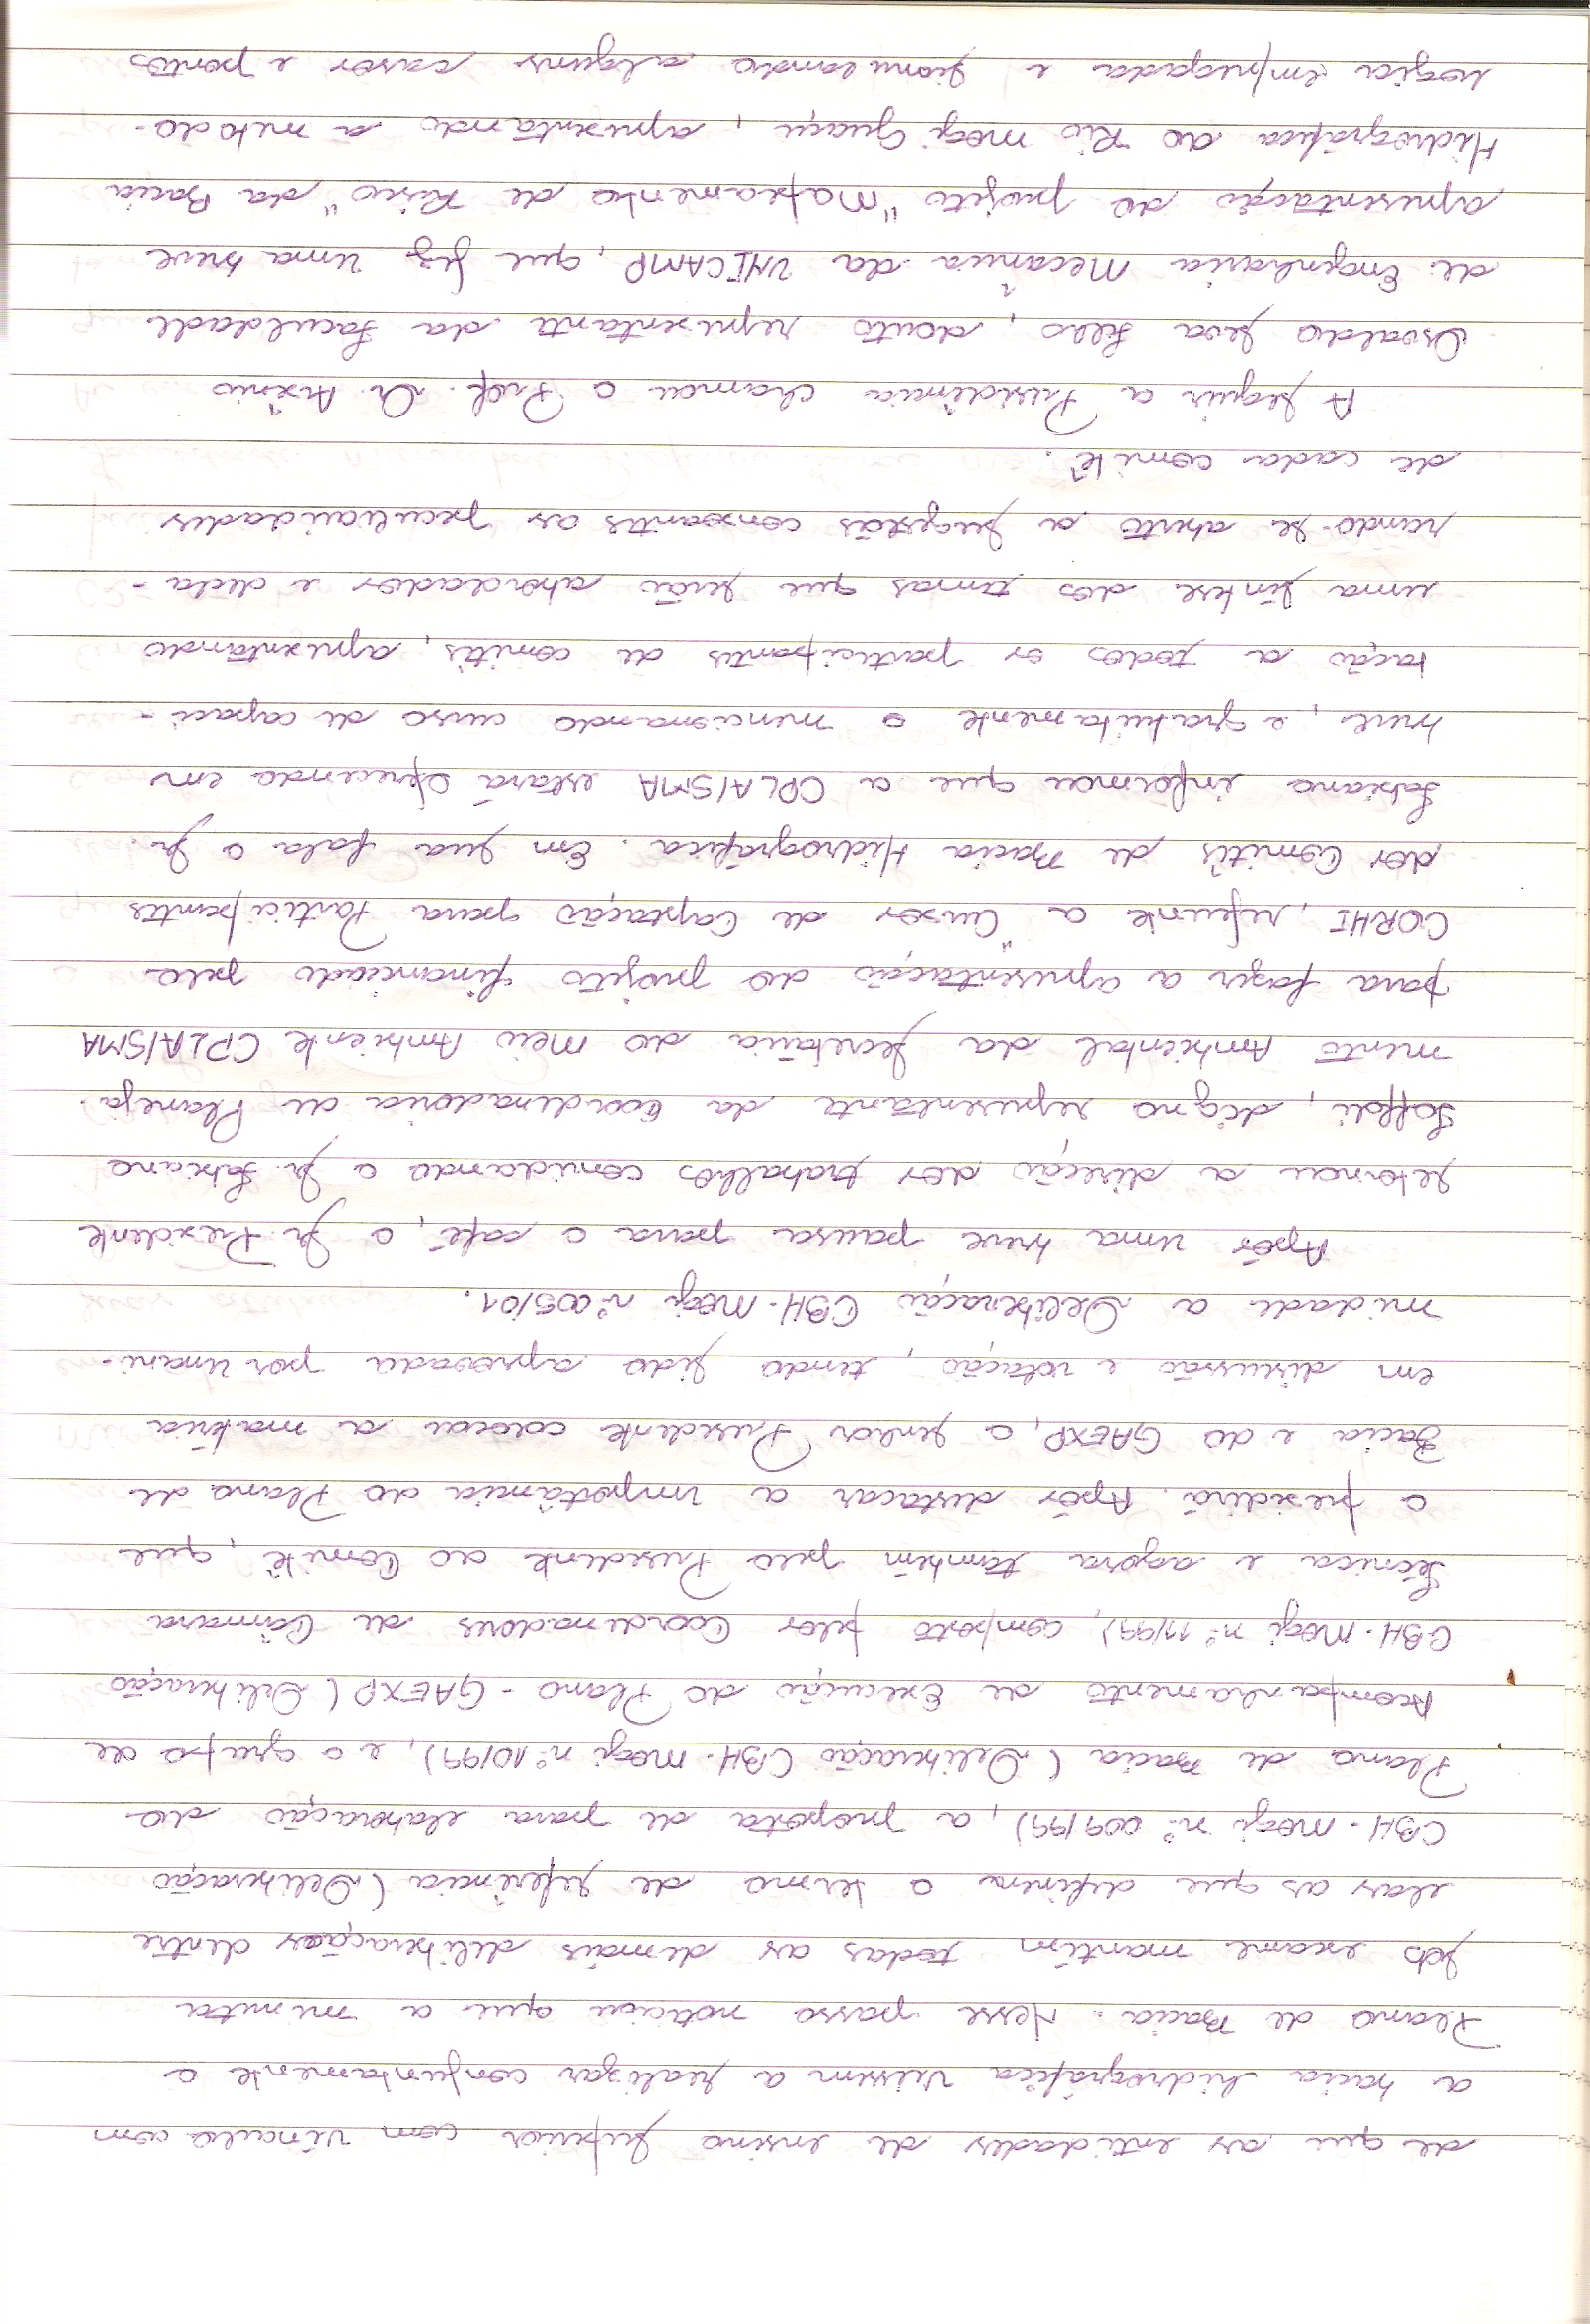 de que as entidades de ensino superior com vínculo com
a bacia hidrográfica viessem a realizar conjuntamente o
Plano de Bacia. Nesse passo noticiou que a minuta
sob exame mantém todas as demais deliberações dentre
elas as que definem o termo de referência (Deliberação
CBH-Mogi nº 009/99), a proposta de para elaboração do
Plano de Bacia (Deliberação CBH-Mogi nº 10/99), e o grupo de
Acompanhamento de Execução do Plano - GAEXP (Deliberação
CBH-Mogi nº 11/99), composto pelos Coordenadores de Câmara
Técnica e agora também pelo Presidente do Comitê, que
o presidirá. Após destacar a importância do Plano de
Bacia e do GAEXP, o senhor Presidente colocou a matéria
em discussão e votação, tendo sido aprovada por unani-
midade a Deliberação CBH-Mogi nº 005/01.
Após uma breve pausa para o café, o Sr. Presidente
retornou a direção dos trabalhos convidando o Sr. Fabiano
Toffoli, digno representante da Coordenadoria de Planeja-
mento Ambiental da Secretaria do Meio Ambiente CPLA/SMA
para fazer a apresentação do projeto financiado pelo
CORHI, referente a "Cursos de Captação para Participantes
dos Comitês de Bacia Hidrográfica. Em sua fala o Sr.
Fabiano informou que a CPLA/SMA estará oferecendo em
breve, e gratuitamente o mencionado curso de capaci-
tação a todos os participantes de comitês, apresentando
uma síntese dos temas que serão abordados e decla-
rando-se aberto a sugestões consoantes as peculiaridades
de cada comitê.
A seguir a Presidência chamou o Prof. Dr. Arsênio
Oswaldo Seva Filho, douto representante da Faculdade
de Engenharia Mecânica da UNICAMP, que fez uma breve
apresentação do projeto "Mapeamento de Risco" da Bacia
Hidrográfica do Rio Mogi Guaçu, apresentando a metodo-
logia empregada e simulando alguns casos e pontos